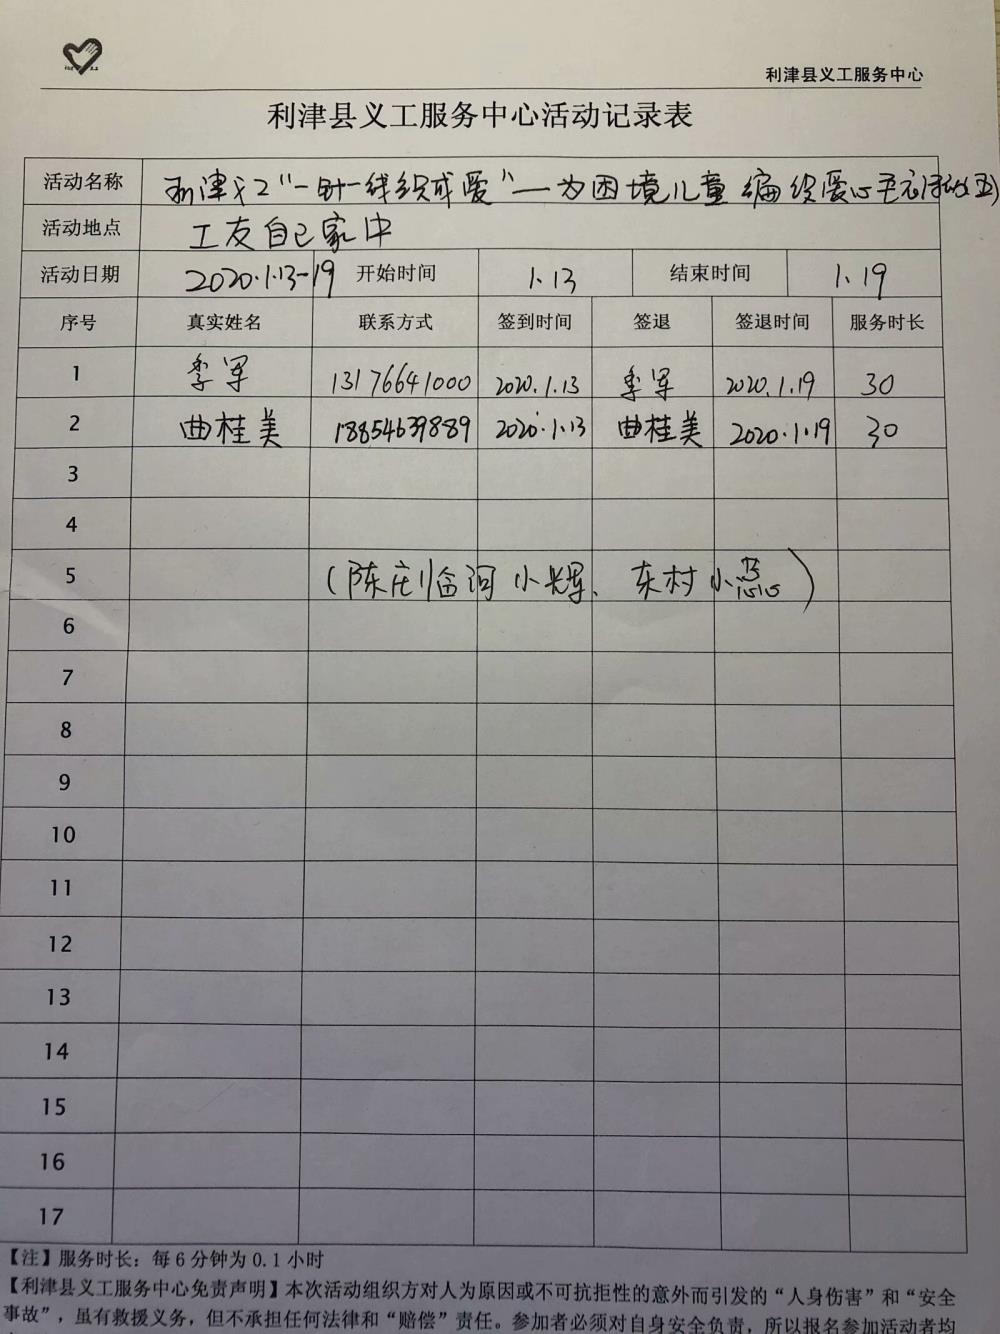 利津县义工服务中心
利津县义工服务中心活动记录表
活动名称 利津义工“一针一线织成爱”—为困境儿童编织爱心毛衣活动(五)
活动地点 工友自己家中
活动日期 2020.1.13-19 开始时间 1.13 结束时间 1.19
序号 真实姓名 联系方式 签到时间 签退 签退时间 服务时长
1 季军 13176641000 2020.1.13 季军 2020.1.19 30
2 曲桂美 18854639889 2020.1.13 曲桂美 2020.1.19 30
3
4
5 (陈庄临河小辉、东村小)
6
7
8
9
10
11
12
13
14
15
16
17
【注】服务时长：每6分钟为0.1小时
【利津县义工服务中心免责声明】本次活动组织方对人为原因或不可抗拒性的意外而引发的“人身伤害”和“安全
事故”，虽有救援义务，但不承担任何法律和“赔偿”责任。参加者必须对自身安全负责，所以报名参加活动者均